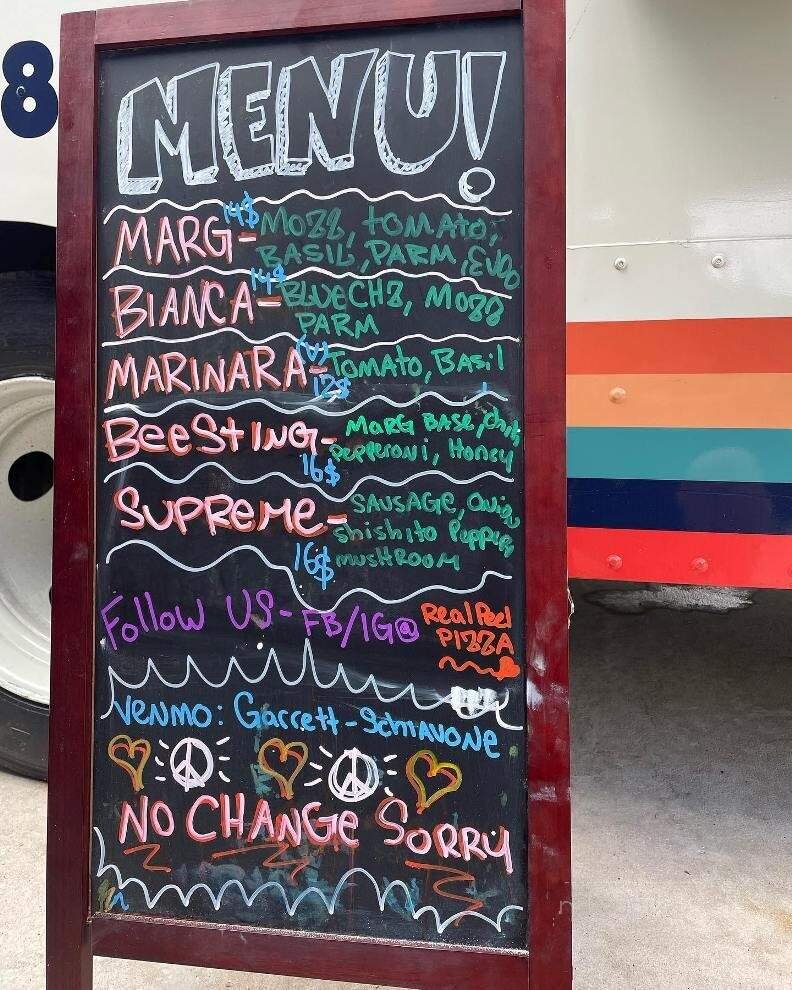 8
MENU!
MARG- 14$ MOZZ, TOMATO,
BASIL, PARM, EVOO
BIANCA- 14$ BLUE CHZ, MOZZ
PARM
MARINARA- (V) 12$ TOMATO, BASIL
BEESTING- MARG BASE,
16$ PEPPERONI, HONEY
SUPREME- SAUSAGE, ONION
SHISHITO PEPPERS
16$ MUSHROOM
Follow US- FB/IG@ RealPeel
PIZZA
VENMO: Garrett-SCHIAVONE
NO CHANGE SORRY